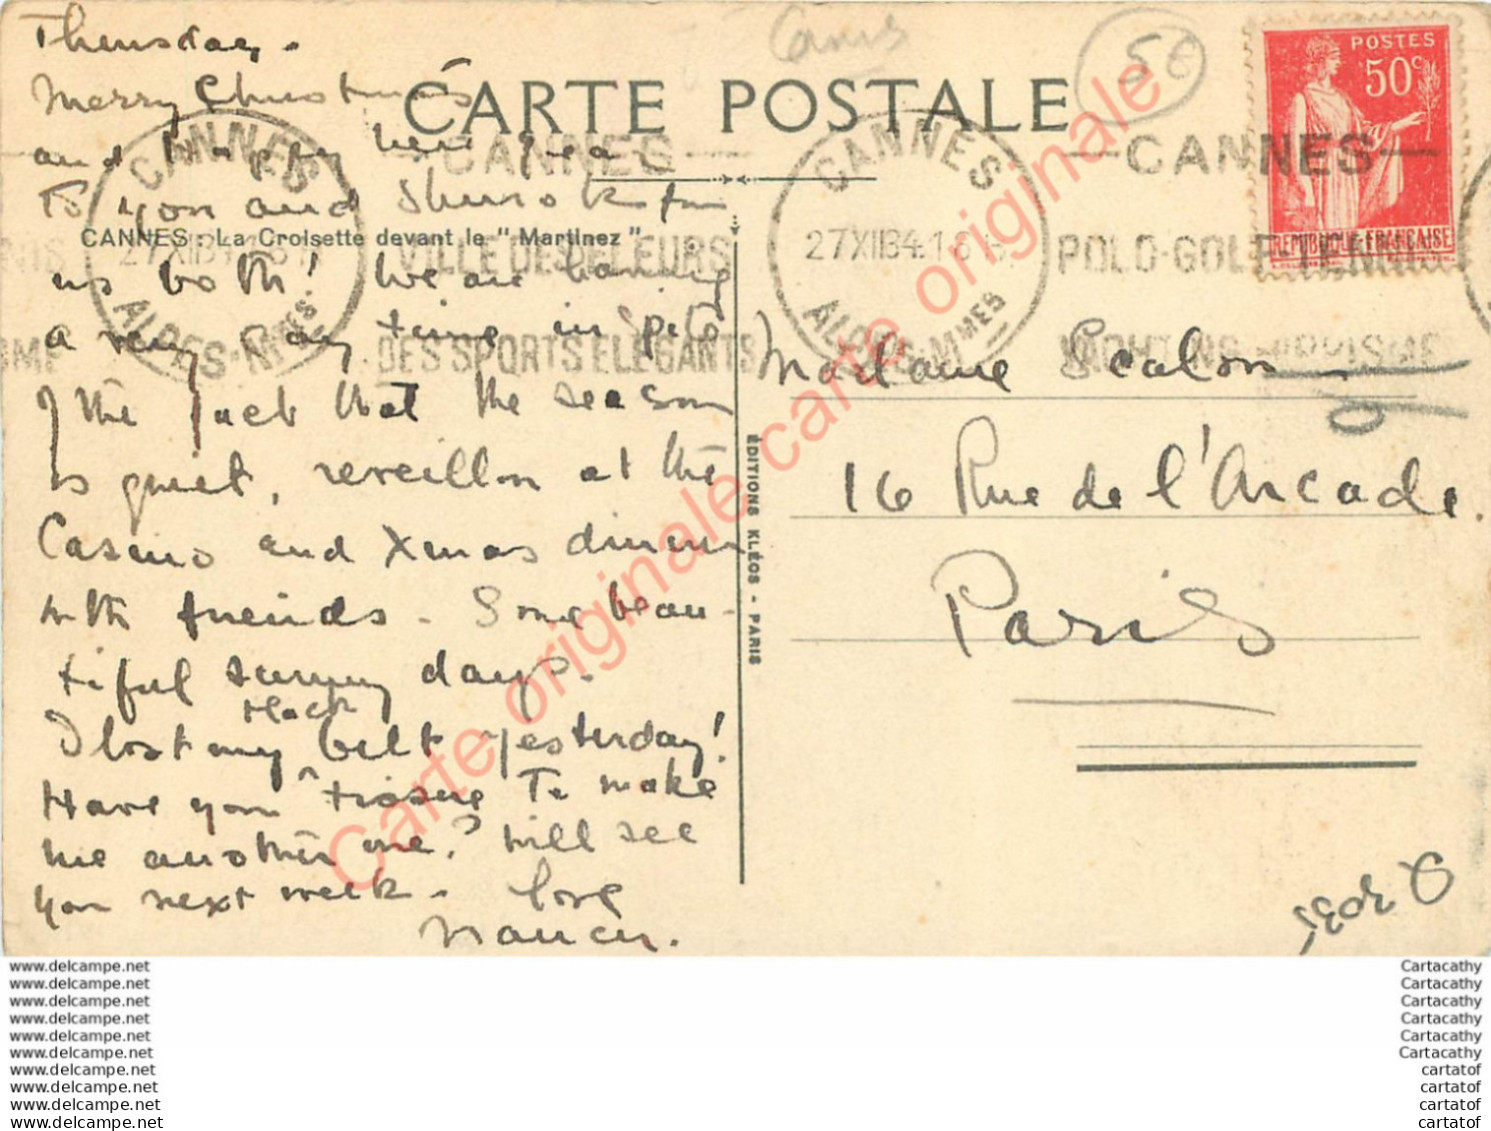 Thursday.
Merry Christmas
and happy new year
to you and from
us both! We are having
a very gay time in spite
of the fact that the season
is quiet, reveillon at the
Casino and Xmas dinner
with friends. Some beau-
tiful sunny days.
black
I lost my belt yesterday!
Have you tissue to make
me another one? Will see
you next week. Love
Nancy.
CARTE POSTALE
CANNES : La Croisette devant le "Martinez"
CANNES
27 XII 34
ALPES-MMES
CANNES
VILLE DES FLEURS
DES SPORTS ELEGANTS
CANNES
27 XII 34
ALPES-MMES
CANNES
POLO-GOLF-TENNIS
YACHTING
5€
POSTES
50c
REPUBLIQUE FRANCAISE
Madame
16 Rue de l'Arcade.
Paris
ÉDITIONS KLÉOS - PARIS
Carte originale carte originale carte originale
www.delcampe.net
www.delcampe.net
www.delcampe.net
www.delcampe.net
www.delcampe.net
www.delcampe.net
www.delcampe.net
www.delcampe.net
www.delcampe.net
www.delcampe.net
Cartacathy
Cartacathy
Cartacathy
Cartacathy
Cartacathy
Cartacathy
cartatof
cartatof
cartatof
cartatof